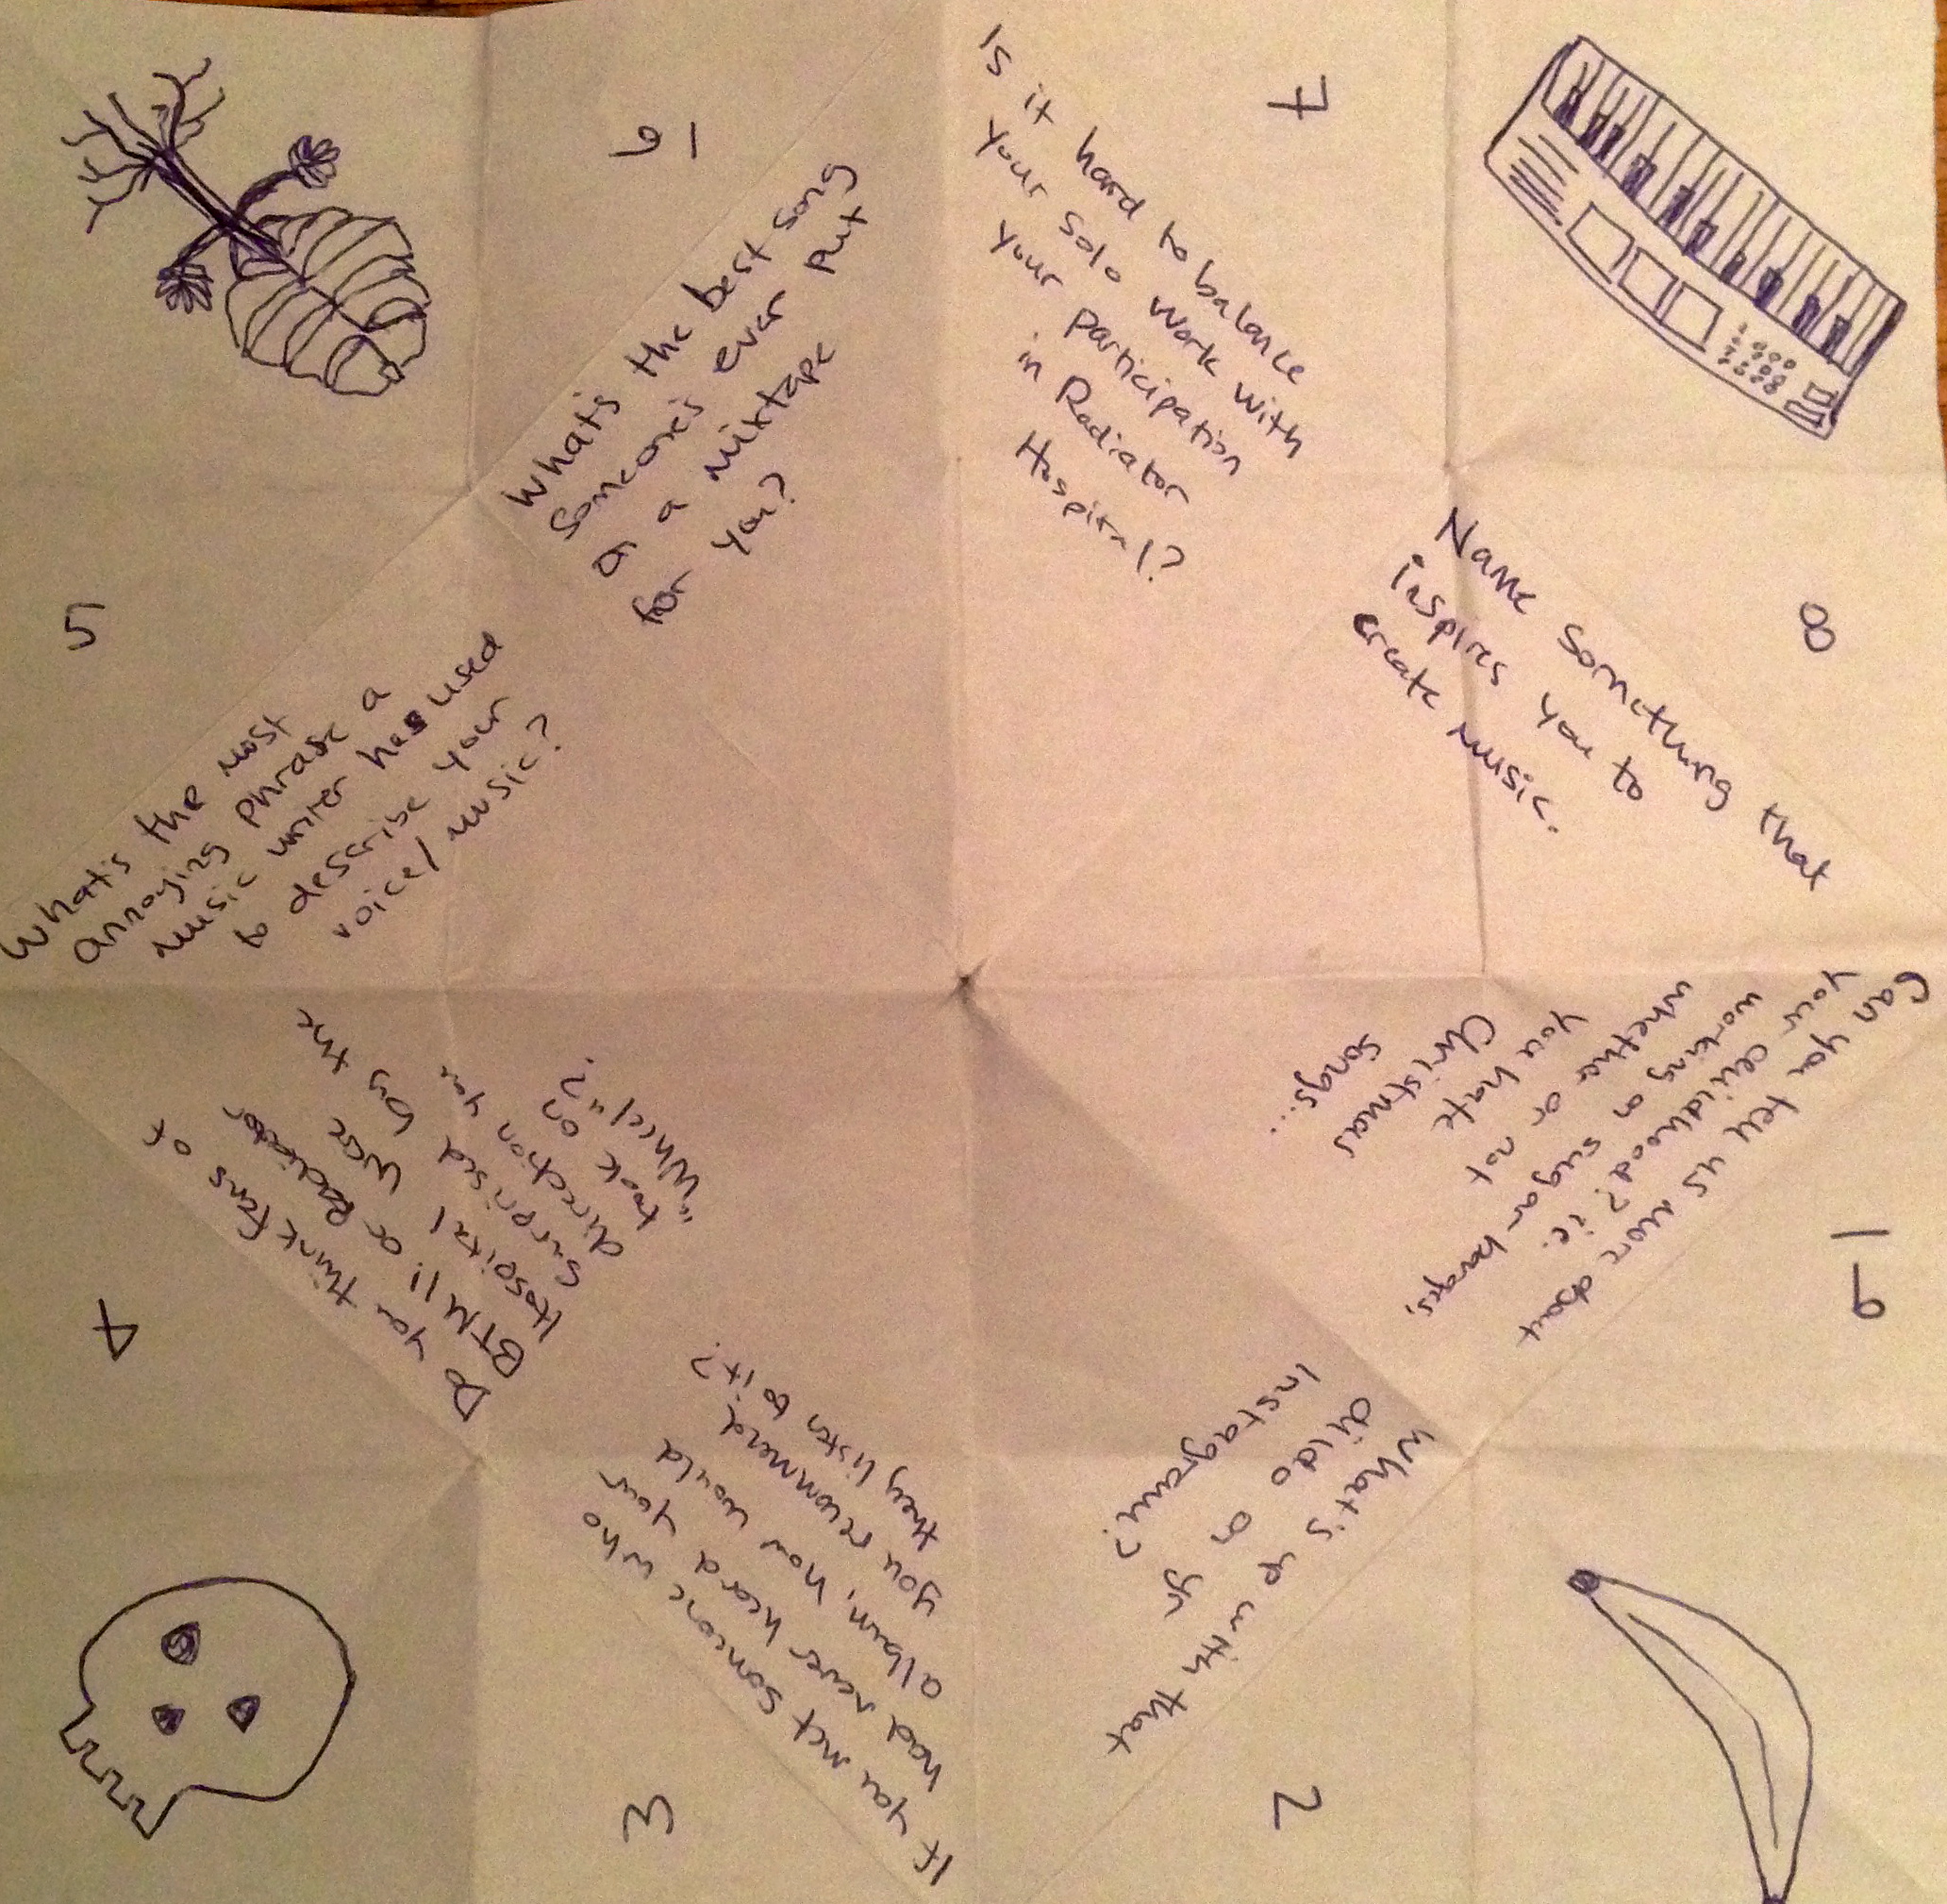 16
What's the best song
someone's ever put
on a mixtape
for you?
7
Is it hard to balance
your solo work with
your participation
in Radiator
Hospital?
8
Name something that
inspires you to
create music.
19
Can you tell us more about
your childhood? ie.
working on sugar barges,
whether or not
you hate
Christmas
songs...
2
What's up with that
dildo on yr
Instagram?
3
If you met someone who
had never heard your
album, how would
you recommend
they listen to it?
4
Do you think fans of
BTM!! or Radiator
Hospital were
surprised by the
direction you
took on
"Wheel"?
5
What's the most
annoying phrase a
music writer has used
to describe your
voice/music?